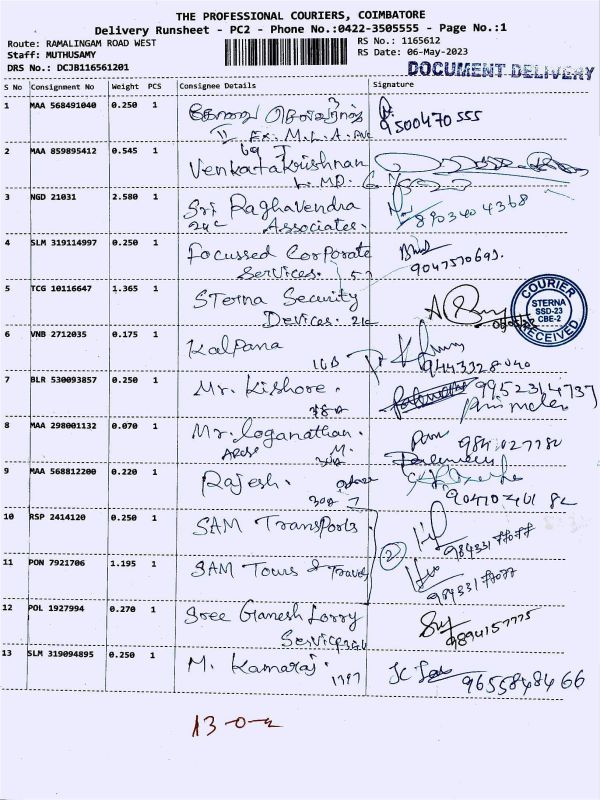 THE PROFESSIONAL COURIERS, COIMBATORE
Delivery Runsheet - PC2 - Phone No.:0422-3505555 - Page No.:1
Route: RAMALINGAM ROAD WEST RS No.: 1165612
Staff: MUTHUSAMY RS Date: 06-May-2023
DRS No.: DCJB116561201 DOCUMENT DELIVERY
S No Consignment No Weight PCS Consignee Details Signature
1 MAA 568491040 0.250 1
Ex. M.L.A. 9500470555
2 MAA 859895412 0.545 1 Venkatakrishnan
3 NGD 21031 2.580 1 Sri Raghavendra
Associates. 8903404368
4 SLM 319114997 0.250 1 Focussed Corporate
Services. 57
5 TCG 10116647 1.365 1 Sterna Security
Devices. COURIER STERNA SSD-23 CBE-2 RECEIVED
6 VNB 2712035 0.175 1 Kalpana
9443328040
7 BLR 530093857 0.250 1 Mr. Kishore. 9952314737
8 MAA 298001132 0.070 1 Mr. loganathan.
9 MAA 568812200 0.220 1 Rajesh.
10 RSP 2414120 0.250 1 SAM Transports
2
11 PON 7921706 1.195 1 SAM Tours & Travels
12 POL 1927994 0.270 1 Sree Ganesh Lorry
Service 9894157775
13 SLM 319094895 0.250 1 M. Kamaraj.
9655848466
13-0-2